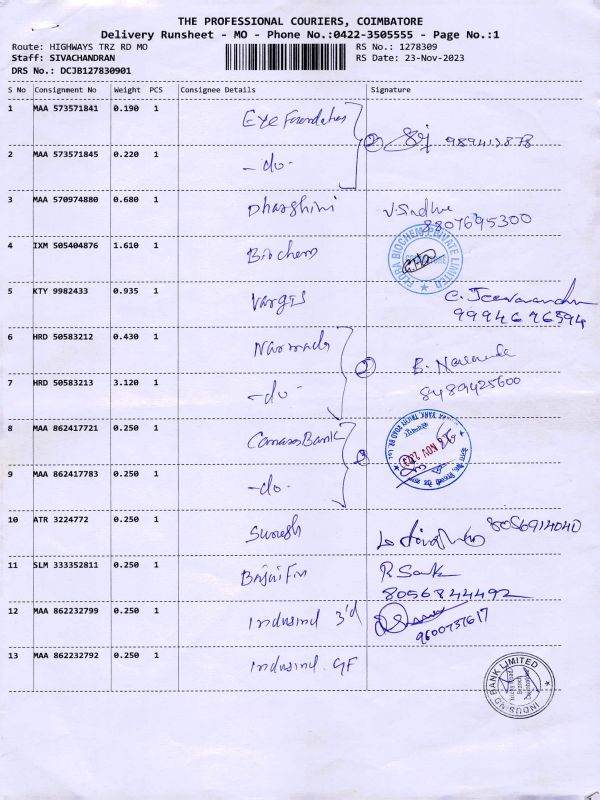 THE PROFESSIONAL COURIERS, COIMBATORE
Delivery Runsheet - MO - Phone No.:0422-3505555 - Page No.:1
Route: HIGHWAYS TRZ RD MO RS No.: 1278309
Staff: SIVACHANDRAN RS Date: 23-Nov-2023
DRS No.: DCJB127830901
S No Consignment No Weight PCS Consignee Details Signature
1 MAA 573571841 0.190 1 Eye Foundation
2 MAA 573571845 0.220 1 -do-
3 MAA 570974880 0.680 1 Dharshini V.Sindhu
8807695300
4 IXM 505404876 1.610 1 Biochem
FLORA BIOCHEM PRIVATE LIMITED
5 KTY 9982433 0.935 1 Vargis
9994696594
6 HRD 50583212 0.430 1 Narmada
7 HRD 50583213 3.120 1 -do- 8489425600
8 MAA 862417721 0.250 1 Canara Bank
9 MAA 862417783 0.250 1 -do-
10 ATR 3224772 0.250 1 Suresh 8056914040
11 SLM 333352811 0.250 1 Bajaj Fin
8056844492
12 MAA 862232799 0.250 1 Indusind 3'd
9600737617
13 MAA 862232792 0.250 1 Indusind GF
INDUSIND BANK LIMITED